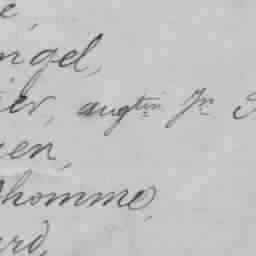 e,
ngel,
ier, augtin Jn
en,
homme,
ard,